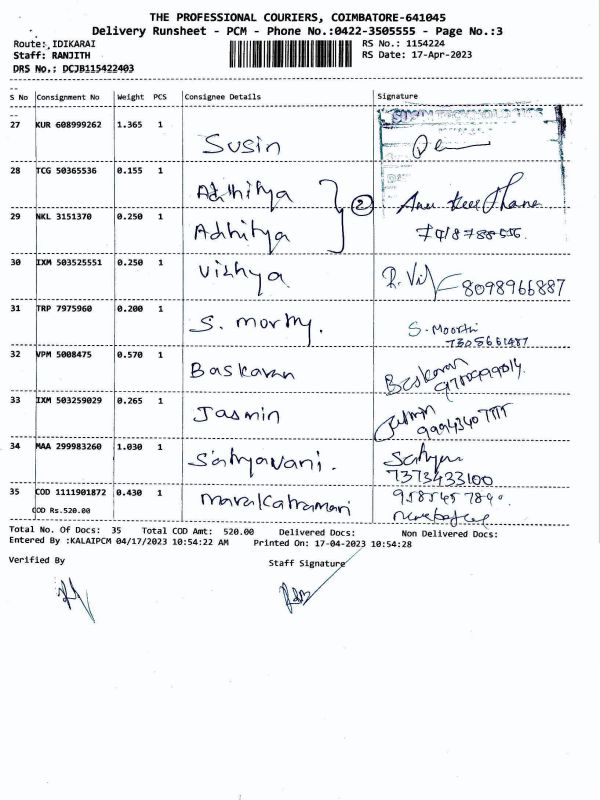 THE PROFESSIONAL COURIERS, COIMBATORE-641045
Delivery Runsheet - PCM - Phone No.:0422-3505555 - Page No.:3
Route: IDIKARAI RS No.: 1154224
Staff: RANJITH RS Date: 17-Apr-2023
DRS No.: DCJB115422403
S No Consignment No Weight PCS Consignee Details Signature
27 KUR 608999262 1.365 1 Susin
28 TCG 50365536 0.155 1 Adhitya
29 NKL 3151370 0.250 1 Adhitya 2
30 IXM 503525551 0.250 1 Vidhya 8098966887
31 TRP 7975960 0.200 1 S. morthy. S. Moorthi
7305661487
32 VPM 5008475 0.570 1 Baskaran Baskaran
33 IXM 503259029 0.265 1 Jasmin
34 MAA 299983260 1.030 1 Sathyavani. Sathya
7373433100
35 COD 1111901872 0.430 1
COD Rs.520.00
Total No. Of Docs: 35 Total COD Amt: 520.00 Delivered Docs: Non Delivered Docs:
Entered By :KALAIPCM 04/17/2023 10:54:22 AM Printed On: 17-04-2023 10:54:28
Verified By Staff Signature